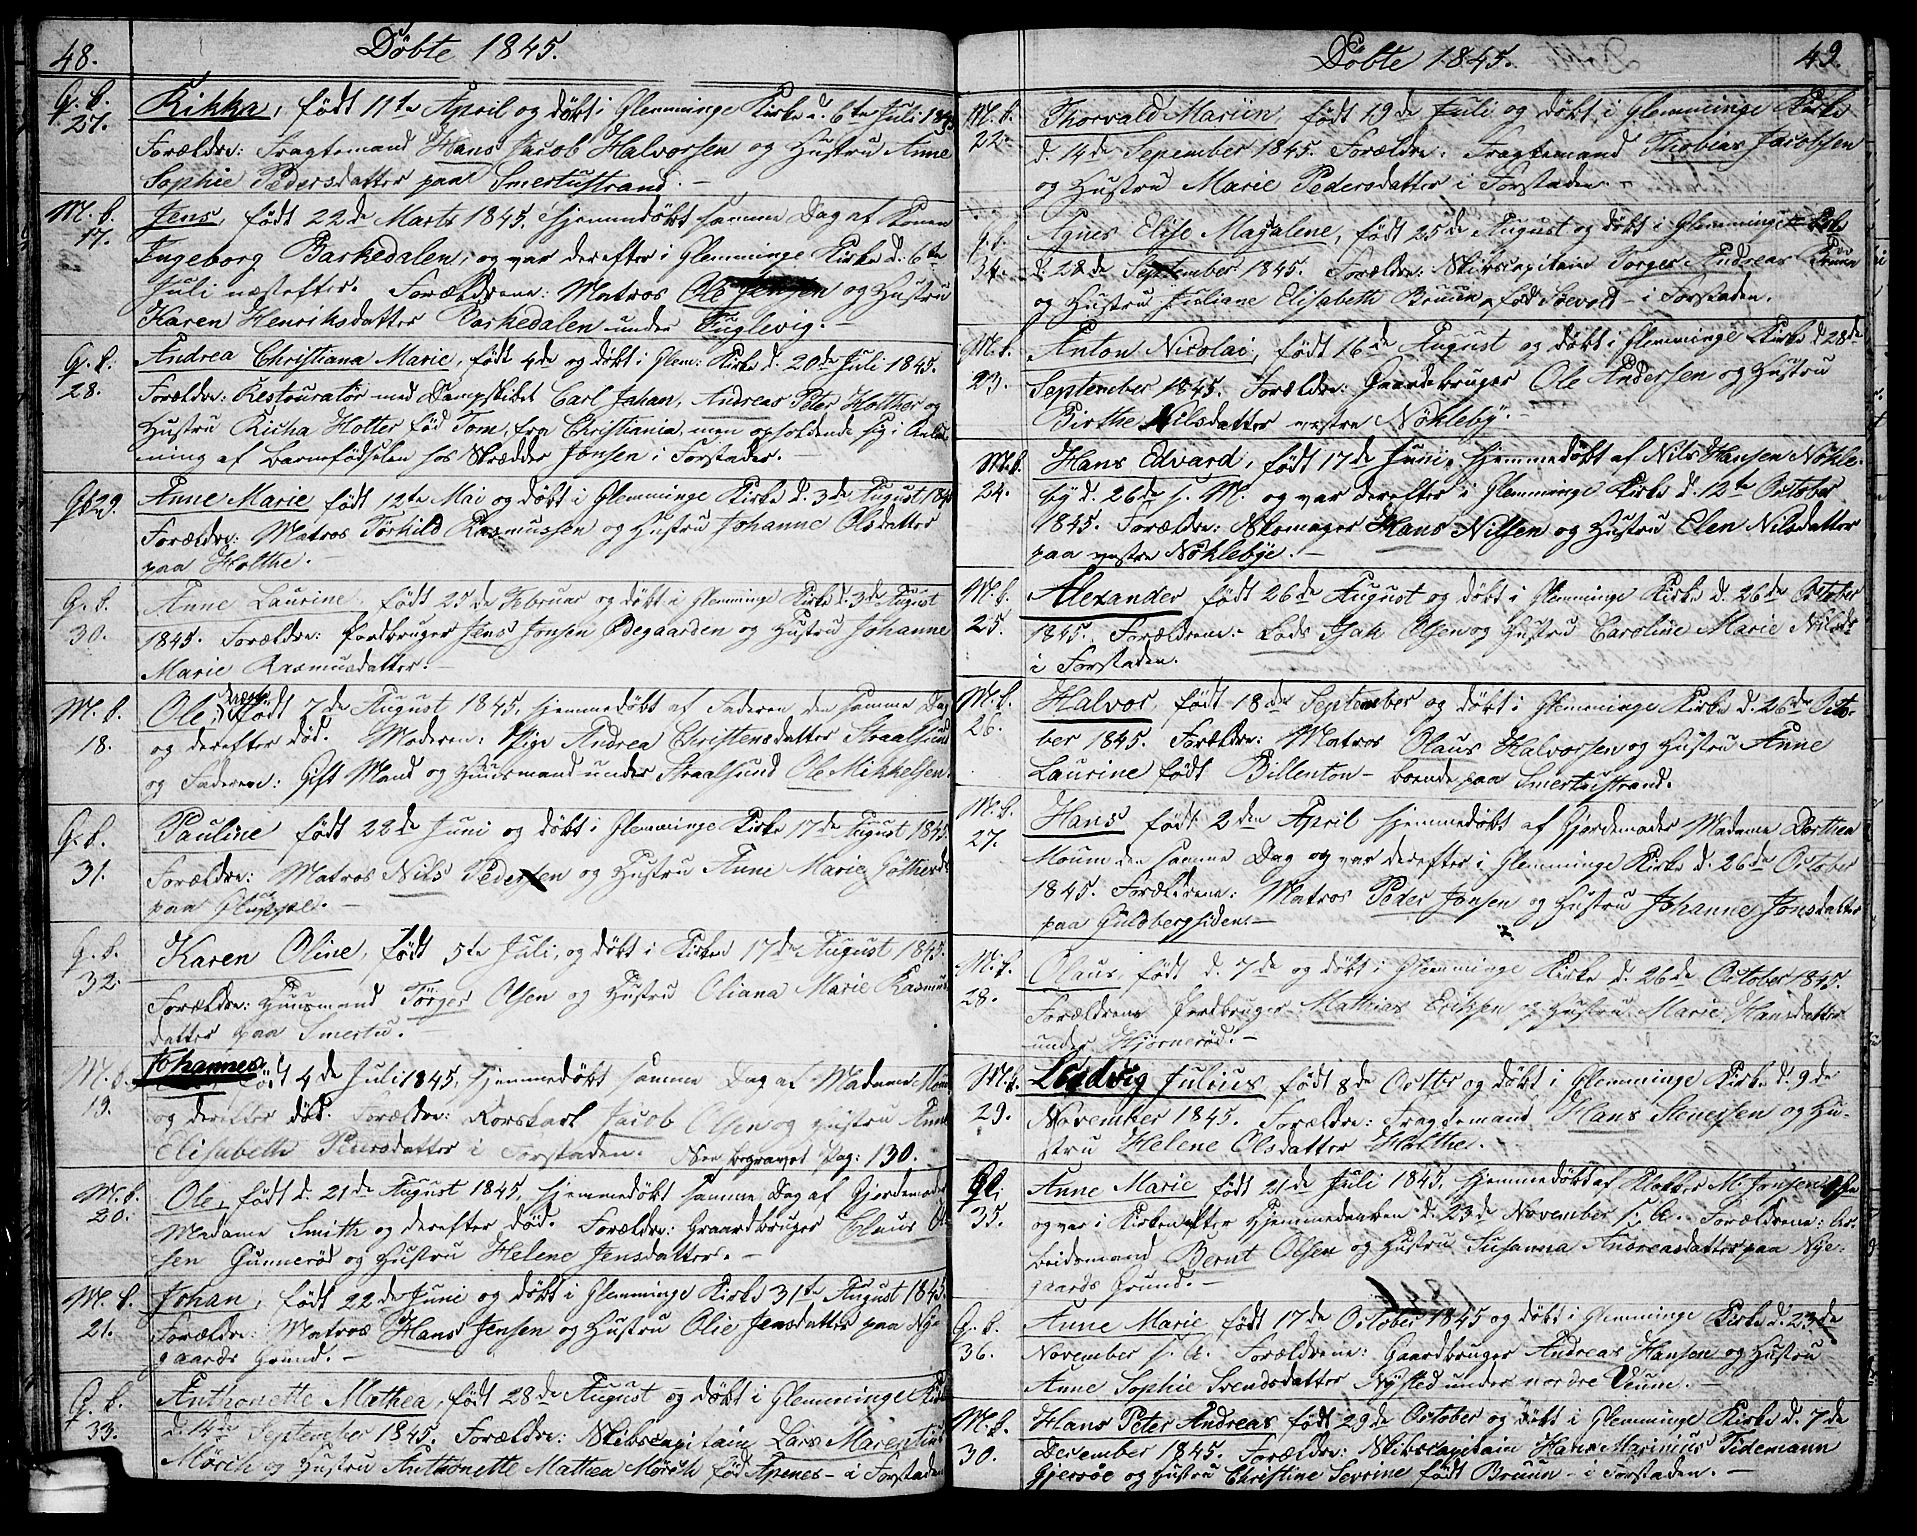 48.
Døbte 1845.
G. b.
27.
Rikka, født 11te April og døbt i Glemminge Kirke d. 6te Juli 1845
Forældre: Fragtemand Hans Jacob Halvorsen og Hustru Anne
Sophie Pedersdatter paa Smertustrand. -
M. b.
17.
Jens, født 22de Marts 1845, hjemmedøbt samme Dag af Konen
Ingeborg Barkedalen, og var derefter i Glemminge Kirke d. 6te
Juli næstefter. Forældrene: Matros Ole Jensen og Hustru
Karen Henriksdatter Barkedalen under Fuglevig. -
G. b.
28.
Andrea Christiana Marie, født 4de og døbt i Glem: Kirke d. 20de Juli 1845.
Forældre: Restouratør med Dampskibet Carl Johan, Andreas Peter Holther og
Hustru Richa Holter fød Tom, fra Christiania, men opholdende sig i Anled-
ning af Barnfødselen hos Skrædder Jonsen i Forstaden. -
G. b. 29.
Anne Marie født 12te Mai og døbt i Glemminge Kirke d. 3de August 1845
Forældre: Matros Törkild Rasmussen og Hustru Johanne Olsdatter
paa Holthe. -
G. b.
30.
Anne Laurine, født 25de Februar og døbt i Glemminge Kirke d. 3de August
1845. Forældre: Jordbruger Jens Jonsen Ødegaarden og Hustru Johanne
Marie Rasmusdatter. -
M. b.
18.
Ole, født 7de August 1845, hjemmedøbt af Faderen den samme Dag
og derefter død. Moderen: Pige Andrea Christensdatter Straalsund
og Faderen: Gift Mand og Huusmand under Straalsund Ole Mikkelsen.
G. b.
31.
Pauline født 22de Juni og døbt i Glemminge Kirke 17de August 1845.
Forældre: Matros Nils Pedersen og Hustru Anne Marie
paa
G. b.
32.
Karen Oline, født 5te Juli, og døbt i Kirken 17de August 1845.
Forældre: Huusmand Törger Olsen og Hustru Oliana Marie Rasmus-
datter paa Smertu.
M. b.
19.
Johannes født 4de Juli 1845, hjemmedøbt samme Dag af Madame
og derefter død. Forældre: Rorskarl Jacob Olsen og Hustru Anne
Elisabeth Pedersdatter i Forstaden. Seer begravet Pag: 130.
M. b.
20.
Ole, født d. 21de August 1845, hjemmedøbt samme Dag af Gjordemoder
Madame Smith og derefter død. Forældre: Gaardbruger Claus Ol-
sen Gunnerød og Hustru Helene Jensdatter. -
M. b.
21.
Johan, født 22de Juni og døbt i Glemminge Kirke 31te August 1845.
Forældre: Matros Hans Jensen og Hustru Olie Jensdatter paa Nye-
gaards Grund. -
G. b.
33.
Anthonette Mathea, født 28de August og døbt i Glemminge Kirke
d. 14de September 1845. Forældre: Skibscapitain Lars Marentius
Mörch og Hustru Anthonette Mathea Mörch fød Apenes - i Forstaden
Døbte 1845.
49.
M. b.
22.
Thorvald Mariin, født 19de Juli og døbt i Glemminge Kirke
d. 14de September 1845. Forældre: Fragtemand Thobias Jacobsen
og Hustru Marie Pedersdatter i Forstaden. -
G. b.
34.
Agnes Elise Magalene, født 25de August og døbt i Glemminge Kirke
d. 28de September 1845. Forældre: Skibscapitain Torger Andreas Bruun
og Hustru Juliane Elisabeth Bruun, fød Soevold - i Forstaden.
M. b.
23.
Anton Nicolai, født 16de August og døbt i Glemminge Kirke d 28de
September 1845. Forældre: Gaardebruger Ole Andersen og Hustru
Birthe Nilsdatter vestre Nökleby. -
M. b.
24.
Hans Edvard, født 17de Juni, hjemmedøbt af Nils Hansen Nökle-
by d. 26de s. M. og var derefter i Glemminge Kirke d. 12te October
1845. Forældre: Skomager Hans Nilsen og Hustru Elen Nilsdatter
paa vestre Nöklebye. -
M. b.
25.
Alexander født 26de August og døbt i Glemminge Kirke d. 26de October
1845. Forældrene: Lods Isak Olsen og Hustru Caroline Marie Nilsd:
i Forstaden.
M. b.
26.
Halvor, født 18de September og døbt i Glemminge Kirke d. 26de Octo-
ber 1845. Forældre: Matros Olaus Halvorsen og Hustru Anne
Laurine født Billenton - boende paa Smertustrand.
M. b.
27.
Hans født 2den April hjemmedøbt af Gjordemoder Madame Dorthea
Moum den samme Dag og var derefter i Glemminge Kirke d. 26de October
1845. Forældrene: Matros Peder Jonsen og Hustru Johanne Jonsdatter
paa Guldbergsiden. -
M. b.
28.
Olaus, født d. 7de og døbt i Glemminge Kirke d. 26de October 1845.
Forældrene Jordbruger Mathias Eriksen og Hustru Marie Hansdatter
under Hjörnerød. -
M. b.
29.
Lodvig Julius født 8de Octbr og døbt i Glemminge Kirke d. 9de
November 1845. Forældre: Fragtemand Hans Senersen og Hu-
stru Helene Olsdatter Holthe. -
G. b.
35.
Anne Marie født 21de Juli 1845, hjemmedøbt af Klokker M. Jonsen
og var i Kirken efter Hjemmedaaben d. 23de November s. A. Forældrene: Ar-
beidsmand Bernt Olsen og Hustru Susanna Andreasdatter paa Nye-
gaards Grund. -
G. b.
36.
Anne Marie født 17de October 1845 og døbt i Glemminge Kirke d. 23de
November s. A. Forældrene: Gaardbruger Andreas Hansen og Hustru
Anne Sophie Svendsdatter Nysted under nordre Veum. -
M. b.
30.
Hans Peter Andreas født 29de October og døbt i Glemminge Kirke d. 7de
December 1845. Forældre: Skibscapitain Hans Marinius Tidemann
Gjersöe og Hustru Christine Sevrine født Bruun - i Forstaden. -